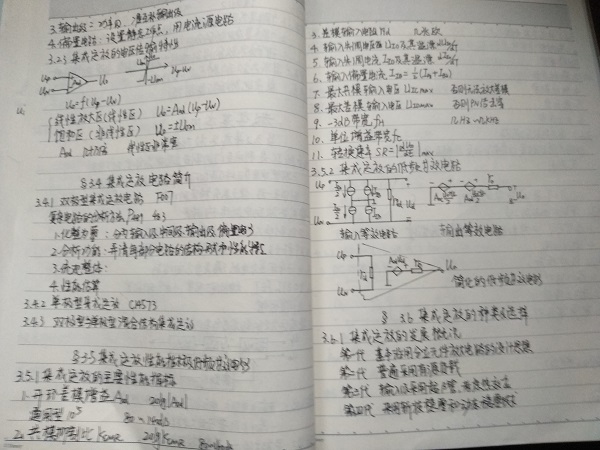 3. 输出级:功率级, 准互补输出级
4. 偏置电路: 设置静态工作点, 用电流源电路
3.2.3 集成运放的电压传输特性
uo = f(up - uN)
线性放大区(线性区) uo = Aod(up - uN)
饱和区(非线性区) uo = ±Uom
Aod 几十万倍 线性区非常窄
§3.4 集成运放电路简介
3.4.1 双极型集成运放电路 F007
1. 化整为零: 分为输入级 中间级 输出级 偏置电路
2. 分析功能: 弄清每部分电路的结构形式和性能特点
3. 统观整体:
4. 性能估算
3.4.2 单极型集成运放 C14573
3.4.3 双极型与单极型混合结构集成运放
§3.5 集成运放性能指标及低频等效电路
3.5.1 集成运放的主要性能指标
1. 开环差模增益 Aod 20lg|Aod|
通用型 10⁵ 80~140dB
2. 共模抑制比 KCMR 20lgKCMR
3. 差模输入电阻 rid 几兆欧
4. 输入失调电压 UIO 及其温漂 dUIO/dT
5. 输入失调电流 IIO 及其温漂 dIIO/dT
6. 输入偏置电流 IIB = ½(IB1 + IB2)
7. 最大共模输入电压 UIcmax 否则无法放大差模
8. 最大差模输入电压 UIdmax 否则PN结击穿
9. -3dB带宽 fH
10. 单位增益带宽 fc
11. 转换速率 SR = |duo/dt|max
3.5.2 集成运放的低频等效电路
输入等效电路 输出等效电路
简化的低频等效电路
§3.6 集成运放的种类及选择
3.6.1 集成运放的发展概况
第一代 基本沿用分立元件放大电路的设计思想
第二代 普遍采用有源负载
第三代 输入级采用超β管
第四代 采用斩波稳零和动态稳零技术